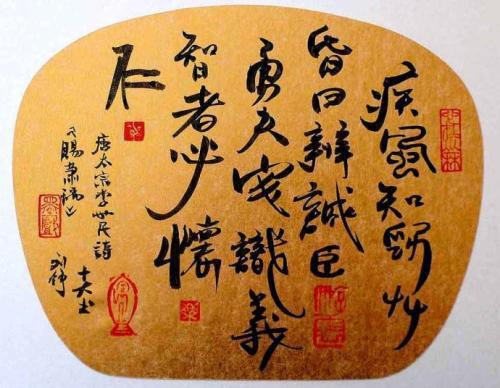 疾風知勁艸
昏日辯誠臣
勇夫安識義
智者必懷
仁
唐太宗李世民詩
《賜蕭瑀》